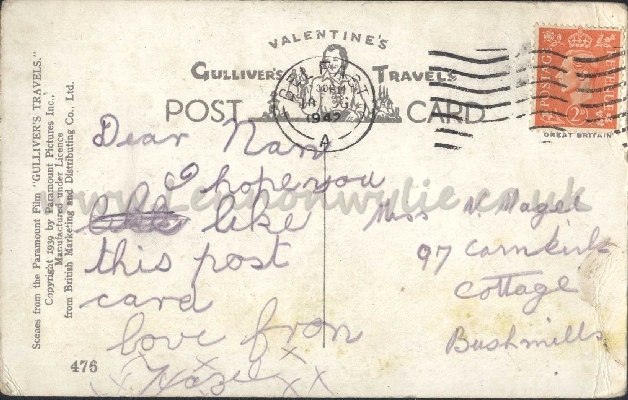 VALENTINE'S
GULLIVER'S TRAVELS
POST CARD
BELFAST
1942
A
POSTAGE
2D
GREAT BRITAIN
Scenes from the Paramount Film "GULLIVER'S TRAVELS."
Copyright 1939 by Paramount Pictures Inc.,
Manufactured under Licence
from British Marketing and Distributing Co., Ltd.
476
Dear Nan
I hope you
like
this post
card
love from
Hazel
xx
Miss N. Magee
97 Carnkirk
Cottage
Bushmills
www.Lennonwylie.co.uk